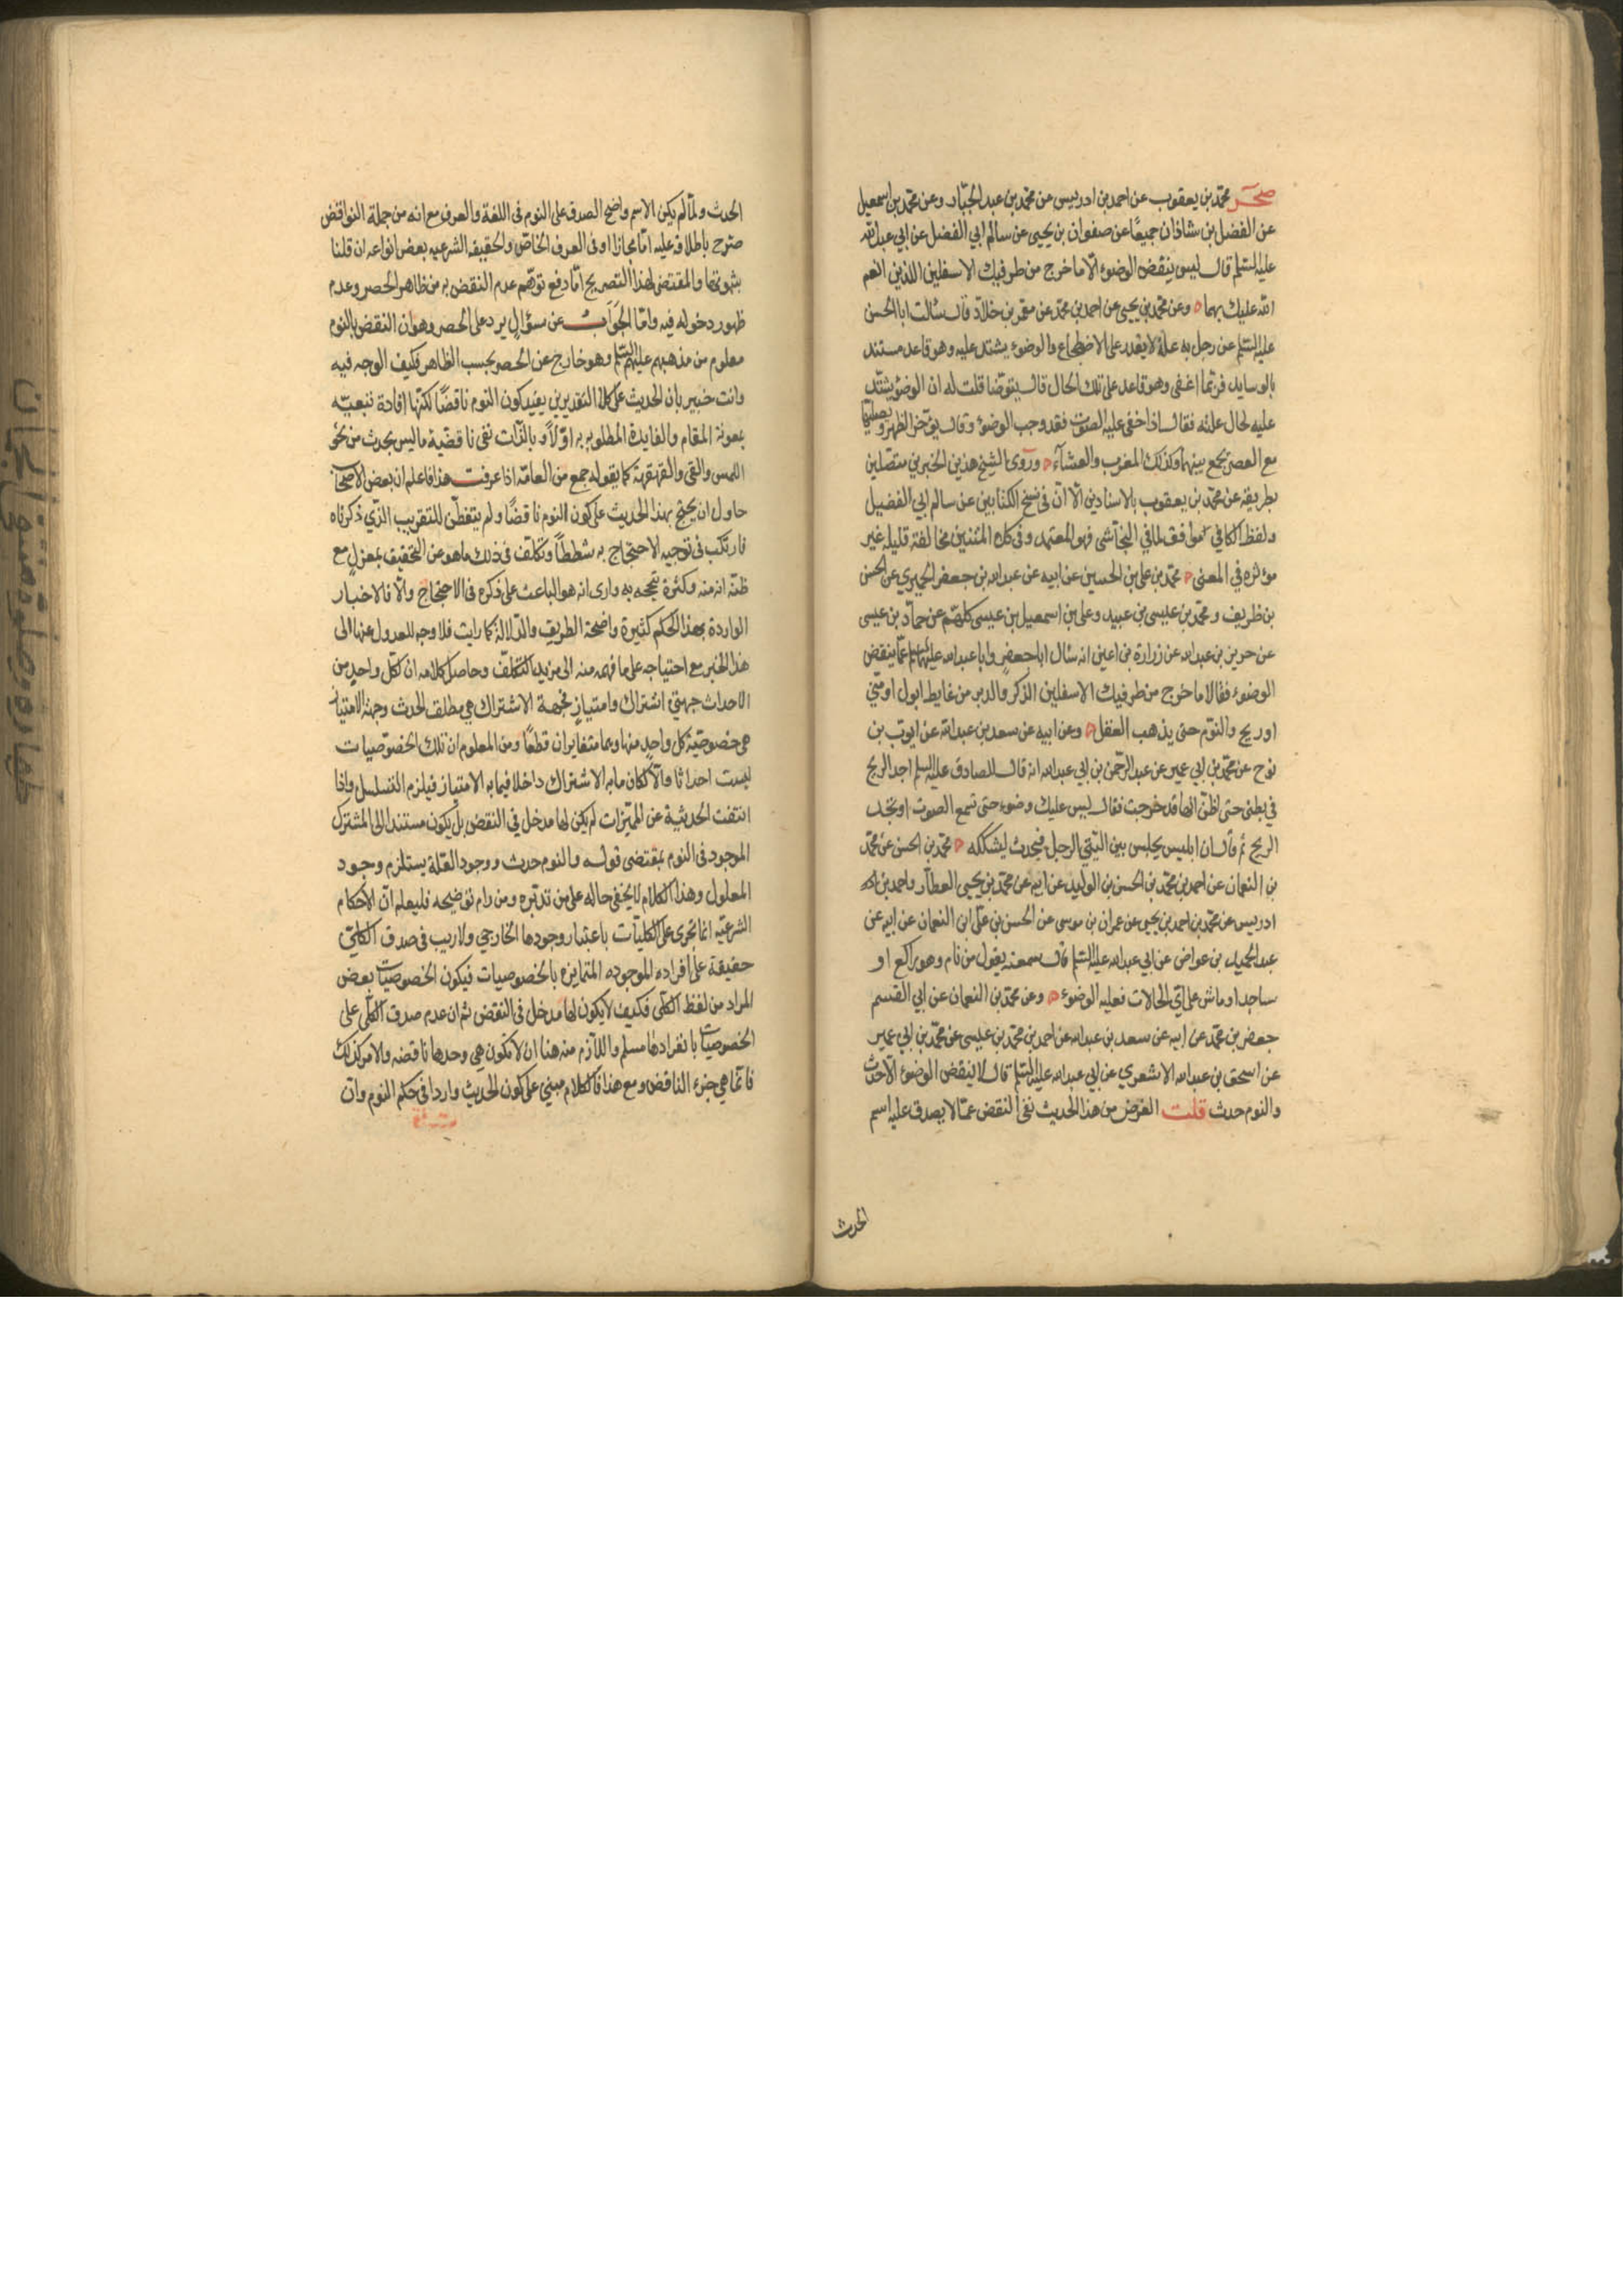 صحر محمد بن يعقوب عن احمد بن ادريس عن محمد بن عبد الجبار وعن محمد بن اسمعيل
عن الفضل بن شاذان جميعا عن صفوان بن يحيى عن سالم ابي الفضل عن ابي عبد الله
عليه السلم قال ليس ينقض الوضوء الا ما خرج من طرفيك الاسفلين اللذين انعم
الله عليك بهما وعن محمد بن يحيى عن احمد بن محمد عن معمر بن خلاد قال سألت ابا الحسن
عليه السلم عن رجل به علة لا يقدر على الاضطجاع والوضوء يشتد عليه وهو قاعد مستند
بالوسايد فربما اغفى وهو قاعد على تلك الحال قال يتوضا قلت له ان الوضوء يشتد
عليه لحال علته فقال اذا خفى عليه الصوت فقد وجب الوضوء وقال يؤخر الظهر ويصليها
مع العصر يجمع بينهما وكذلك المغرب والعشآء وروى الشيخ هذين الخبرين متصلين
بطريقه عن محمد بن يعقوب بالاسنادين الا ان في نسخ الكتابين عن سالم ابي الفضيل
ولفظ الكافي موافق لما في النجاشى فهو المعتمد وفى كلا المتنين مخالفة قليلة غير
مؤثرة في المعنى محمد بن على بن الحسين عن ابيه عن عبد الله بن جعفر الحميري عن الحسن
بن ظريف ومحمد بن عيسى بن عبيد وعلى بن اسمعيل بن عيسى كلهم عن حماد بن عيسى
عن حريز بن عبد الله عن زرارة بن اعين انه سأل ابا جعفر وابا عبد الله عليهما السلم عما ينقض
الوضوء فقالا ما خرج من طرفيك الاسفلين الذكر والدبر من غايط او بول او مني
او ريح والنوم حتى يذهب العقل وعن ابيه عن سعد بن عبد الله عن ايوب بن
نوح عن محمد بن ابي عمير عن عبد الرحمن بن ابي عبد الله انه قال للصادق عليه السلم اجد الريح
في بطني حتى اظن انها قد خرجت فقال ليس عليك وضوء حتى تسمع الصوت او تجد
الريح ثم قال ان ابليس يجلس بين اليتي الرجل فيحدث ليشككه محمد بن الحسن عن محمد
بن النعمان عن احمد بن محمد بن الحسن بن الوليد عن ابيه عن محمد بن يحيى العطار واحمد بن
ادريس عن محمد بن احمد بن يحيى عن عمران بن موسى عن الحسن بن على ابن النعمان عن ابيه عن
عبد الحميد بن عواض عن ابي عبد الله عليه السلم قال سمعته يقول من نام وهو راكع او
ساجد او ماش على اي الحالات فعليه الوضوء وعن محمد بن النعمان عن ابي القسم
جعفر بن محمد عن ابيه عن سعد بن عبد الله عن احمد بن محمد بن عيسى عن محمد بن ابي عمير
عن اسحق بن عبد الله الاشعري عن ابي عبد الله عليه السلم قال لا ينقض الوضوء الا حدث
والنوم حدث قلت الغرض من هذا الحديث نفى النقض عما لا يصدق عليه اسم
الحدث
الحدث ولما لم يكن الاسم واضح الصدق على النوم فى اللغة والعرف مع انه من جملة النواقض
صرح باطلاقه عليه اما مجازا او فى العرف الخاص والحقيقة الشرعيه بعض انواعه ان قلنا
بثبوتها والمقتضى لهذا التصريح اما دفع توهم عدم النقض به من ظاهر الحصر وعدم
ظهور دخوله فيه واما الجواب عن سؤال يرد على الحصر وهو ان النقض بالنوم
معلوم من مذهبهم عليهم السلم وهو خارج عن الحصر بحسب الظاهر فكيف الوجه فيه
وانت خبير بان الحديث على كلا التقديرين يفيد كون النوم ناقضا لكنها افادة تبعية
بمعونة المقام والفايدة المطلوبه به اولا وبالذات نفى ناقضية ما ليس بحدث من نحو
اللمس والقى والقهقهة كما يقوله جمع من العامة اذا عرفت هذا فاعلم ان بعض الاصحاب
حاول ان يحتج بهذا الحديث على كون النوم ناقضا ولم يتفطن للتقريب الذي ذكرناه
فارتكب فى توجيه الاحتجاج به شططا وتكلف فى ذلك ما هو عن التحقيق بمعزل مع
ظنه انه منه وكثرة تبجحه به وارى انه هو الباعث على ذكره فى الاحتجاج والا فالاخبار
الواردة بهذا الحكم كثيرة واضحة الطريق والدلالة كما رايت فلا وجه للعدول عنها الى
هذا الخبر مع احتياجه على ما فهمه منه الى مزيد التكلف وحاصل كلامه ان لكل واحد من
الاحداث جهتي اشتراك وامتياز فجهة الاشتراك هي مطلق الحدث وجهة الامتياز
هى خصوصية كل واحد منها وهما متغايران قطعا ومن المعلوم ان تلك الخصوصيات
ليست احداثا والا لكان ما به الاشتراك داخلا فيما به الامتياز فيلزم التسلسل واذا
انتفت الحدثية عن المميزات لم يكن لها مدخل في النقض بل يكون مستندا الى المشترك
الموجود فى النوم بمقتضى قوله والنوم حدث ووجود العلة يستلزم وجود
المعلول وهذا الكلام لا يخفى حاله على من تدبره ومن رام توضيحه فليعلم ان الاحكام
الشرعية انما تجرى على الكليات باعتبار وجودها الخارجي ولا ريب فى صدق الكلى
حقيقة على افراده الموجوده المتمايزه بالخصوصيات فيكون الخصوصيات بعض
المراد من لفظ الكلى فكيف لا يكون لها مدخل فى النقض ثم ان عدم صدق الكلى على
الخصوصيات بانفرادها مسلم واللازم منه هنا ان لا تكون هي وحدها ناقضه والامر كذلك
فانما هي جزء الناقض ومع هذا فالكلام مبني على كون الحديث واردا فى حكم النوم وان